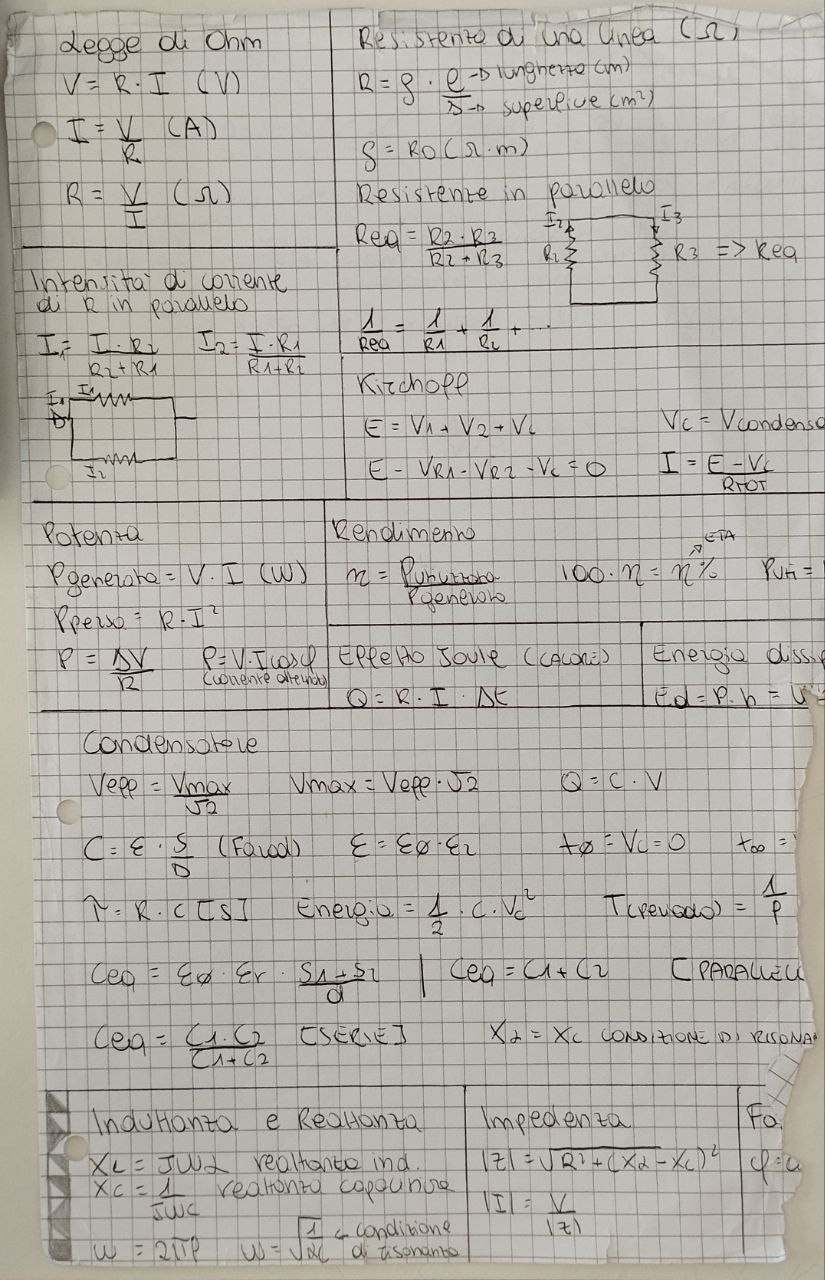 Legge di Ohm
V = R · I (V)
I = V/R (A)
R = V/I (Ω)
Resistenza di una linea (Ω)
R = ρ · l/S → lunghezza (m) → superficie (m²)
ρ = RO (Ω · m)
Resistenze in parallelo
Req = R2 · R3 / R2 + R3
I2 I3
R2 R3 => Req
1/Req = 1/R1 + 1/R2 + ...
Intensità di corrente
di R in parallelo
I1 = I · R2 / R2 + R1 I2 = I · R1 / R1 + R2
I1
I2
Kirchoff
E = V1 + V2 + Vc Vc = Vcondensa
E - VR1 - VR2 - Vc = 0 I = E - Vc / RTOT
Potenza
Pgenerata = V · I (W)
Ppersa = R · I²
P = ΔV/R P = V · I cosφ
(corrente alternata)
Rendimento
ETA
η = Putilizzata / Pgenerata 100 · η = η% Puti =
Effetto Joule (CALORE)
Q = R · I · Δt
Energia dissip
Ed = P · h =
Condensatore
Veff = Vmax/√2 Vmax = Veff · √2 Q = C · V
C = ε · S/D (Farad) ε = εø · εr tø = Vc = 0 t∞ =
τ = R · C [S] Energia = 1/2 · C · Vc² T(periodo) = 1/f
Ceq = εø · εr · S1 + S2 / d | Ceq = C1 + C2 [PARALLEL
Ceq = C1 · C2 / C1 + C2 [SERIE] XL = XC CONDIZIONE DI RISONA
Induttanza e Reattanza
XL = JWL reattanza ind.
XC = 1/JWC reattanza capacitiva
W = 2πf W = √1/LC ← condizione di risonanza
Impedenza
|Z| = √R² + (XL - XC)²
|I| = V/|Z|
Fa
φ = a